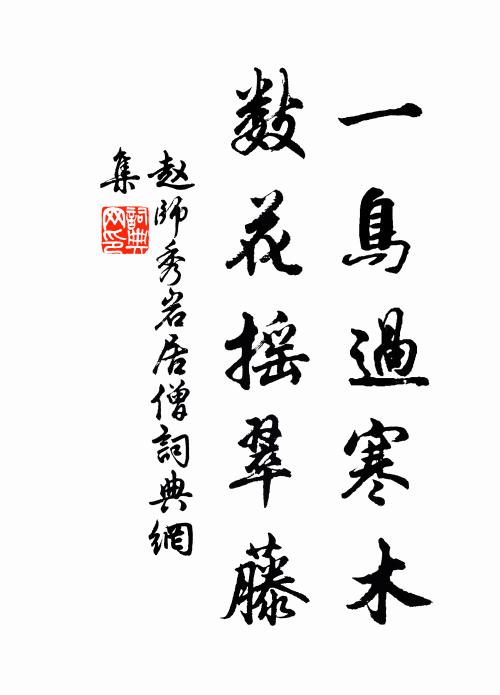 一鳥過寒木
数花摇翠藤
赵師秀岩居僧詞典網
集
詞典网印